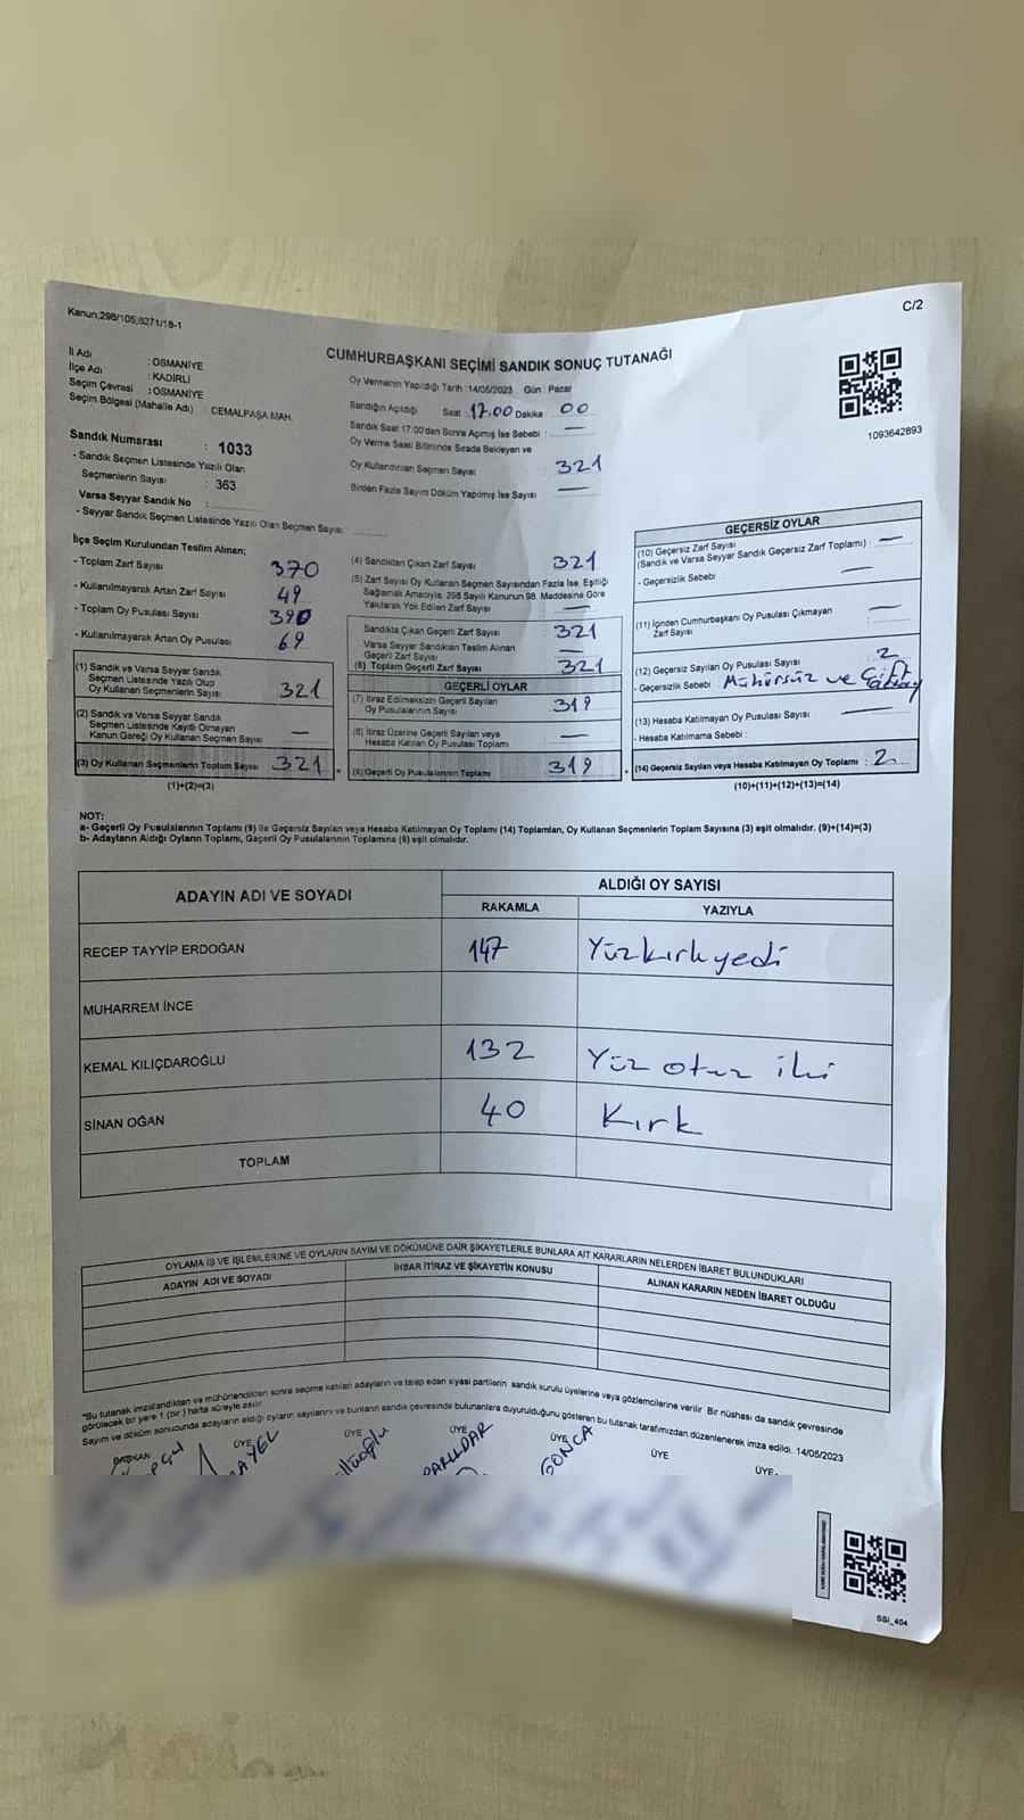 Kanun,298/105,6271/18-1
C/2
CUMHURBAŞKANI SEÇİMİ SANDIK SONUÇ TUTANAĞI
İl Adı : OSMANİYE
İlçe Adı : KADİRLİ
Seçim Çevresi : OSMANİYE
Seçim Bölgesi (Mahalle Adı) : CEMALPAŞA MAH.
Oy Vermenin Yapıldığı Tarih :14/05/2023 Gün : Pazar
Sandığın Açıldığı Saat : 17.00 Dakika : 00
Sandık Saat 17:00'dan Sonra Açılmış İse Sebebi : —
Oy Verme Saati Bitiminde Sırada Bekleyen ve
Oy Kullandırılan Seçmen Sayısı 321
Birden Fazla Sayım Döküm Yapılmış İse Sayısı —
1093642893
Sandık Numarası : 1033
- Sandık Seçmen Listesinde Yazılı Olan
Seçmenlerin Sayısı : 363
Varsa Seyyar Sandık No :
- Seyyar Sandık Seçmen Listesinde Yazılı Olan Seçmen Sayısı:
İlçe Seçim Kurulundan Teslim Alınan;
- Toplam Zarf Sayısı 370
- Kullanılmayarak Artan Zarf Sayısı 49
- Toplam Oy Pusulası Sayısı 390
- Kullanılmayarak Artan Oy Pusulası 69
(1) Sandık ve Varsa Seyyar Sandık
Seçmen Listesinde Yazılı Olup
Oy Kullanan Seçmenlerin Sayısı 321
(2) Sandık ve Varsa Seyyar Sandık
Seçmen Listesinde Kayıtlı Olmayan
Kanun Gereği Oy Kullanan Seçmen Sayısı —
(3) Oy Kullanan Seçmenlerin Toplam Sayısı 321
(1)+(2)=(3)
(4) Sandıktan Çıkan Zarf Sayısı 321
(5) Zarf Sayısı Oy Kullanan Seçmen Sayısından Fazla İse, Eşitliği
Sağlamak Amacıyla, 298 Sayılı Kanunun 98. Maddesine Göre
Yakılarak Yok Edilen Zarf Sayısı —
Sandıkta Çıkan Geçerli Zarf Sayısı 321
Varsa Seyyar Sandıktan Teslim Alınan
Geçerli Zarf Sayısı —
(6) Toplam Geçerli Zarf Sayısı 321
GEÇERLİ OYLAR
(7) İtiraz Edilmeksizin Geçerli Sayılan
Oy Pusulalarının Sayısı 319
(8) İtiraz Üzerine Geçerli Sayılan veya
Hesaba Katılan Oy Pusulası Toplamı —
(9) Geçerli Oy Pusulalarının Toplamı 319
GEÇERSİZ OYLAR
(10) Geçersiz Zarf Sayısı
(Sandık ve Varsa Seyyar Sandık Geçersiz Zarf Toplamı) : —
- Geçersizlik Sebebi —
(11) İçinden Cumhurbaşkanı Oy Pusulası Çıkmayan
Zarf Sayısı —
(12) Geçersiz Sayılan Oy Pusulası Sayısı 2
- Geçersizlik Sebebi Mühürsüz ve Çift
(13) Hesaba Katılmayan Oy Pusulası Sayısı —
- Hesaba Katılmama Sebebi :
(14) Geçersiz Sayılan veya Hesaba Katılmayan Oy Toplamı : 2
(10)+(11)+(12)+(13)=(14)
NOT:
a- Geçerli Oy Pusulalarının Toplamı (9) ile Geçersiz Sayılan veya Hesaba Katılmayan Oy Toplamı (14) Toplamları, Oy Kullanan Seçmenlerin Toplam Sayısına (3) eşit olmalıdır. (9)+(14)=(3)
b- Adayların Aldığı Oyların Toplamı, Geçerli Oy Pusulalarının Toplamına (9) eşit olmalıdır.
ADAYIN ADI VE SOYADI
ALDIĞI OY SAYISI
RAKAMLA YAZIYLA
RECEP TAYYİP ERDOĞAN 147 Yüzkırkyedi
MUHARREM İNCE
KEMAL KILIÇDAROĞLU 132 Yüz otuz iki
SİNAN OĞAN 40 Kırk
TOPLAM
OYLAMA İŞ VE İŞLEMLERİNE VE OYLARIN SAYIM VE DÖKÜMÜNE DAİR ŞİKAYETLERLE BUNLARA AİT KARARLARIN NELERDEN İBARET BULUNDUKLARI
ADAYIN ADI VE SOYADI İHBAR İTİRAZ VE ŞİKAYETİN KONUSU ALINAN KARARIN NEDEN İBARET OLDUĞU
*Bu tutanak imzalandıktan ve mühürlendikten sonra seçime katılan adayların ve talep eden siyasi partilerin sandık kurulu üyelerine veya gözlemcilerine verilir. Bir nüshası da sandık çevresinde
görülecek bir yere 1 (bir) hafta süreyle asılır.
Sayım ve döküm sonucunda adayların aldığı oyların sayılarını ve bunların sandık çevresinde bulunanlara duyurulduğunu gösteren bu tutanak tarafımızdan düzenlenerek imza edildi. 14/05/2023
BAŞKAN ÜYE ÜYE ÜYE ÜYE ÜYE ÜYE
GONCA
SSİ_404